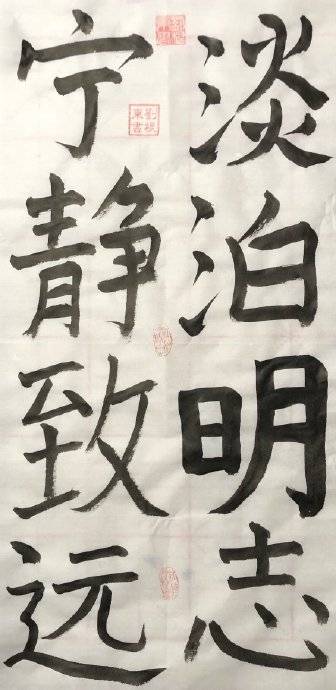 淡泊明志
宁静致远